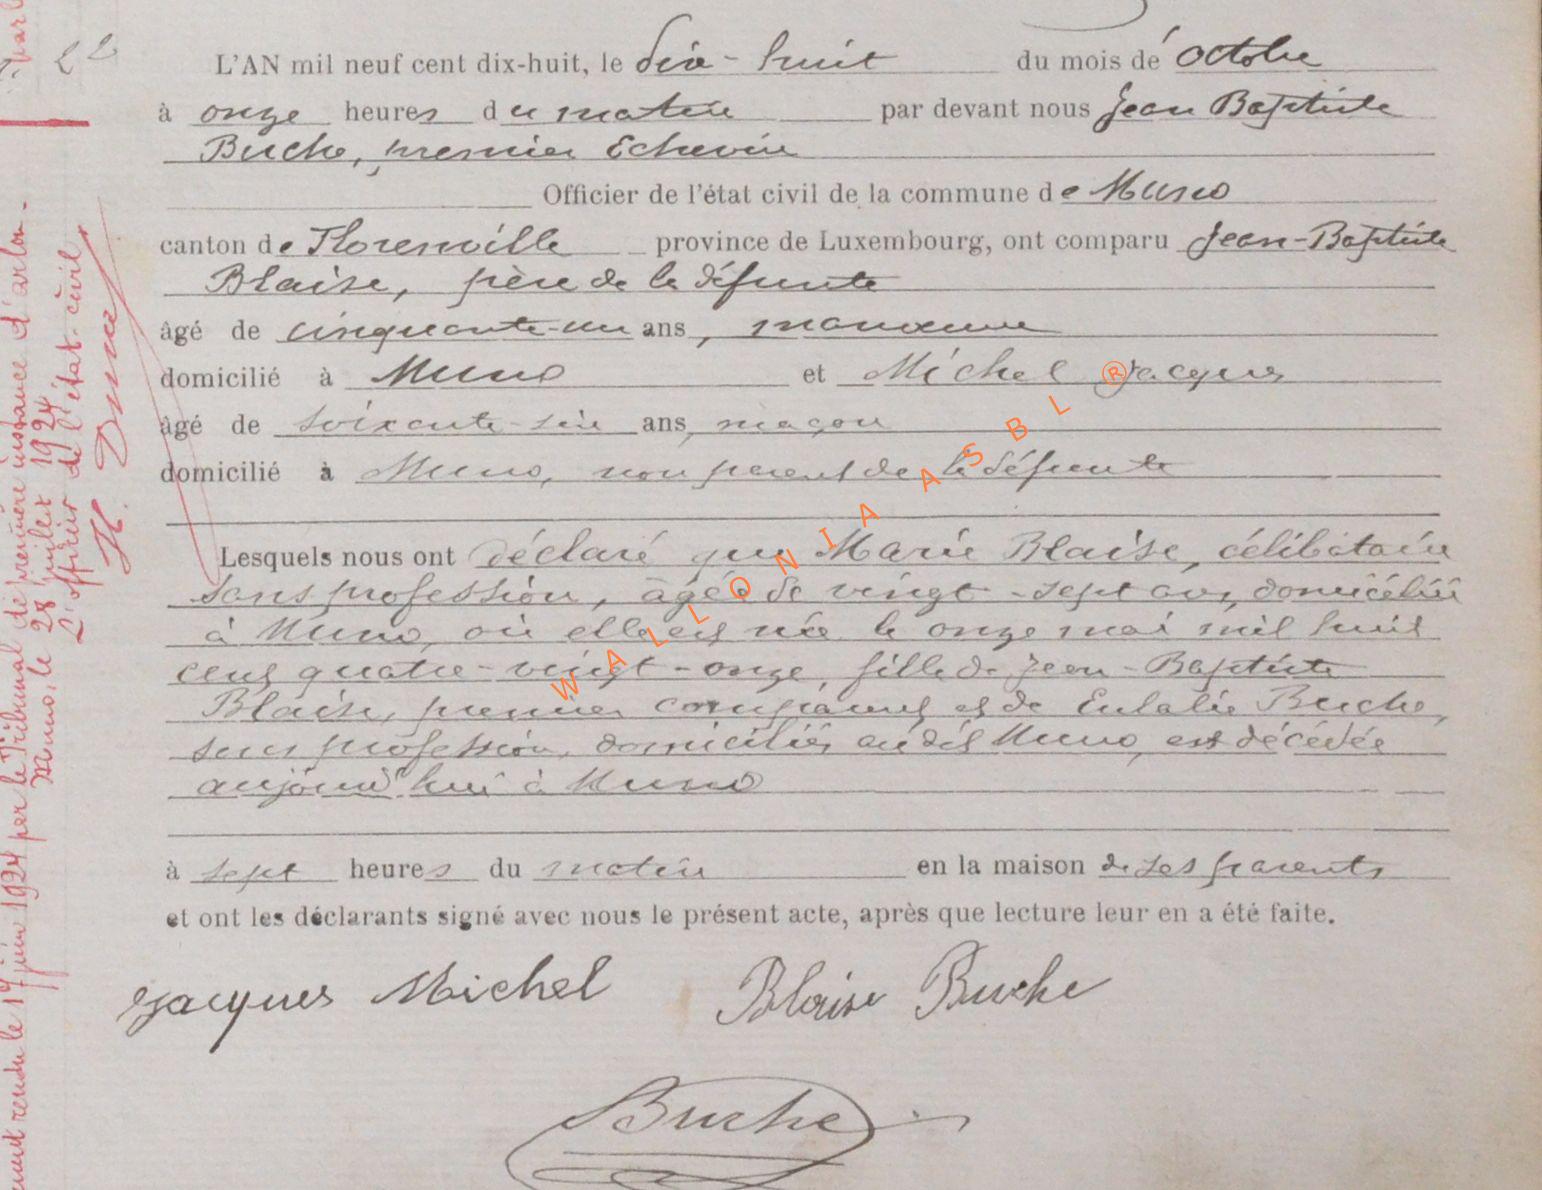 22
L'AN mil neuf cent dix-huit, le dix-huit du mois de Octobre
à onze heures du matin par devant nous Jean Baptiste
Buche, premier Echevin
Officier de l'état civil de la commune de Muno
canton de Florenville province de Luxembourg, ont comparu Jean-Baptiste
Blaise, père de la défunte
âgé de cinquante-un ans, manœuvre
domicilié à Muno et Michel Jacques
âgé de soixante-six ans, maçon
domicilié à Muno, non parent de la défunte
Lesquels nous ont déclaré que Marie Blaise, célibataire
sans profession, âgée de vingt-sept ans, domiciliée
à Muno, où elle est née le onze mai mil huit
cent quatre-vingt-onze, fille de Jean-Baptiste
Blaise, premier comparant et de Eulalie Buche,
sans profession, domiciliés audit Muno, est décédée
aujourd'hui à Muno
à sept heures du matin en la maison de ses parents
et ont les déclarants signé avec nous le présent acte, après que lecture leur en a été faite.
Jacques Michel Blaise Buche
Buche
rendu le 19 juin 1924 par le Tribunal de première instance d'Arlon.
Muno, le 28 juillet 1924
L'officier de l'état-civil,
WALLONIA ASBL ®